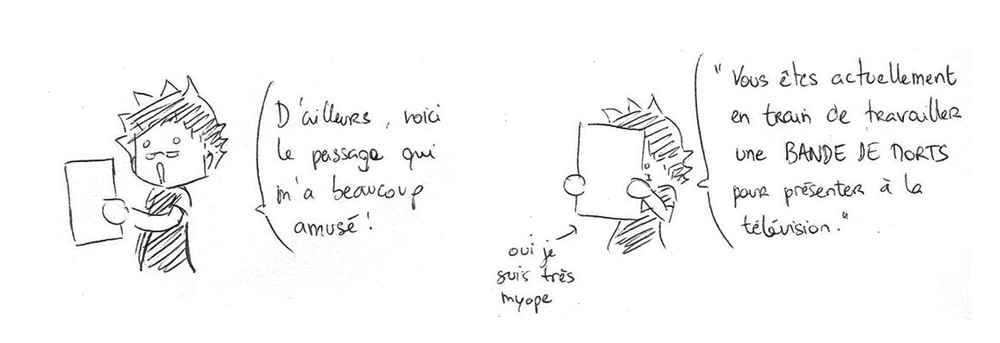 D'ailleurs, voici
le passage qui
m'a beaucoup
amusé!
"Vous êtes actuellement
en train de travailler
une BANDE DE MORTS
pour présenter à la
télévision."
oui je
suis très
myope